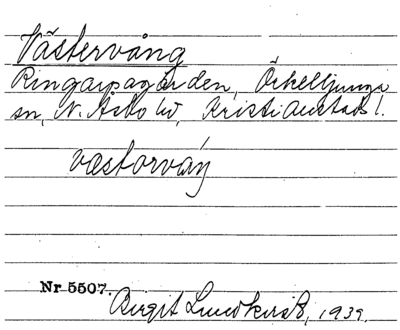 Västervång
Ringarpagården, Örkelljunga
sn, N. Åsbo hd, Kristianstads l.
væstərváŋ
Nr 5507.
Birgit Lundkvist, 1939.